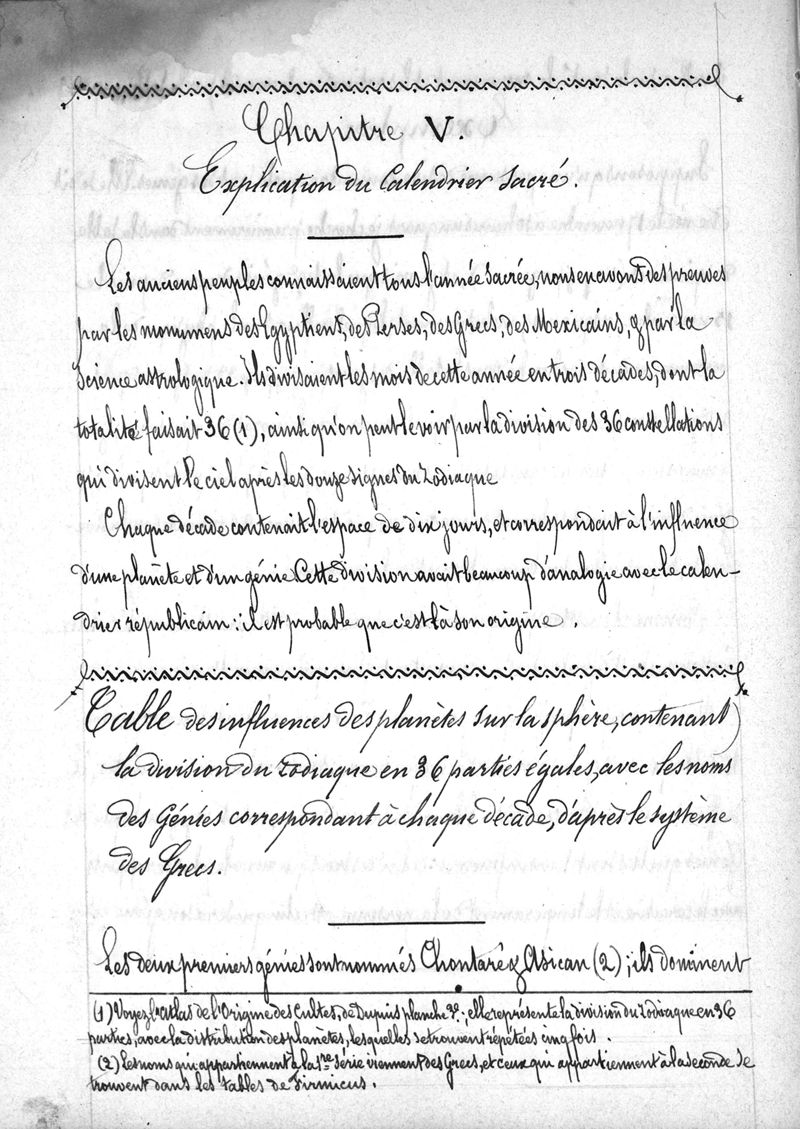 Chapitre V.
Explication du Calendrier Sacré.
Les anciens peuples connaissaient tous l'année Sacrée, nous en avons des preuves
par les monumens des Egyptiens, des Perses, des Grecs, des Mexicains, & par la
Science astrologique. Ils divisaient les mois de cette année en trois décades, dont la
totalité faisait 36 (1), ainsi qu'on peut le voir par la division des 36 constellations
qui divisent le ciel après les douze signes du Zodiaque
Chaque décade contenait l'espace de dix jours, et correspondait à l'influence
d'une planète et d'un génie. Cette division avait beaucoup d'analogie avec le calen-
drier républicain : il est probable que c'est là son origine.
Table des influences des planètes sur la sphère, contenant
la division du Zodiaque en 36 parties égales, avec les noms
des Génies correspondant à chaque décade, d'après le système
des Grecs.
Les deux premiers génies sont nommés Chontaré & Asican (2) ; ils dominent
(1) Voyez l'atlas de l'Origine des Cultes, de Dupuis planche ; elle représente la division du Zodiaque en 36
parties, avec la distribution des planètes, lesquelles se trouvent répétées cinq fois.
(2) Les noms qui appartiennent à la 1re série viennent des Grecs, et ceux qui appartiennent à la seconde se
trouvent dans les tables de Firmicus.